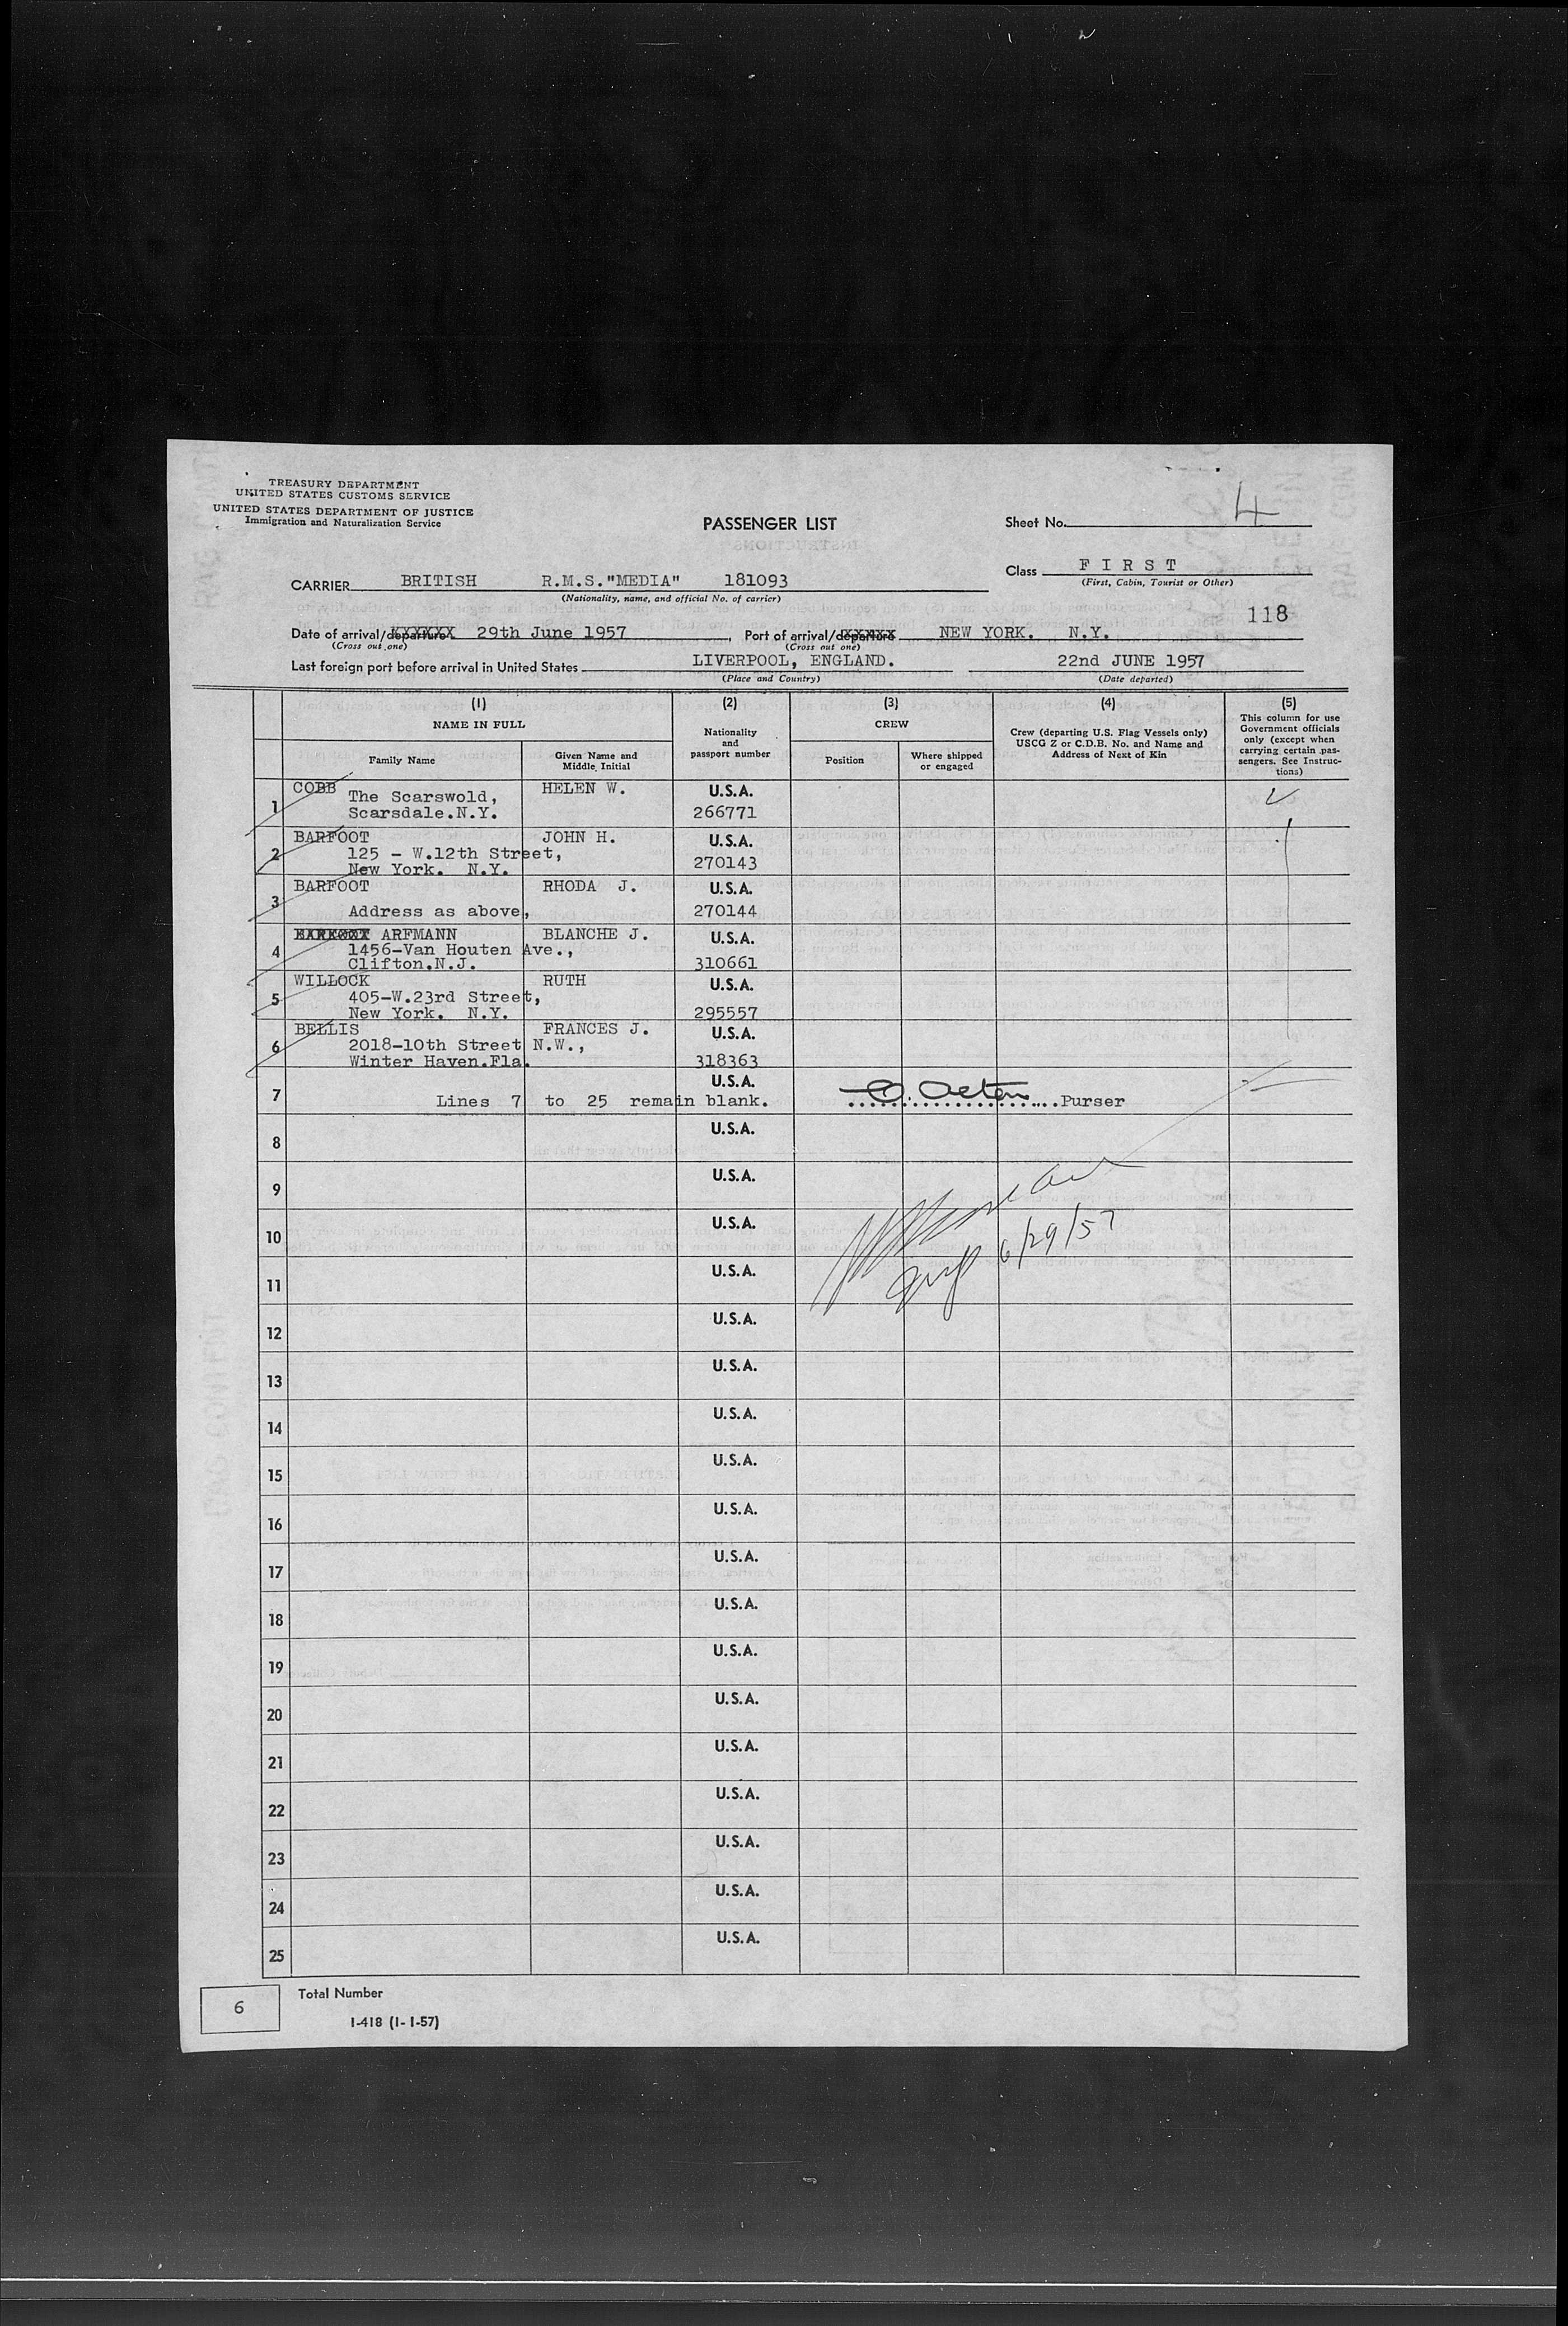 TREASURY DEPARTMENT
UNITED STATES CUSTOMS SERVICE
UNITED STATES DEPARTMENT OF JUSTICE
Immigration and Naturalization Service
PASSENGER LIST
Sheet No. 4
Class F I R S T
(First, Cabin, Tourist or Other)
CARRIER BRITISH R.M.S."MEDIA" 181093
(Nationality, name, and official No. of carrier)
118
Date of arrival/departure 29th June 1957, Port of arrival/departure NEW YORK. N.Y.
(Cross out one) (Cross out one)
Last foreign port before arrival in United States LIVERPOOL, ENGLAND. 22nd JUNE 1957
(Place and Country) (Date departed)
(1) (2) (3) (4) (5)
NAME IN FULL
Family Name
Given Name and Middle Initial
Nationality and passport number
CREW
Position
Where shipped or engaged
Crew (departing U.S. Flag Vessels only)
USCG Z or C.D.B. No. and Name and
Address of Next of Kin
This column for use
Government officials
only (except when
carrying certain pas-
sengers. See Instruc-
tions)
1 COBB HELEN W. U.S.A.
The Scarswold,
Scarsdale.N.Y. 266771
2 BARFOOT JOHN H. U.S.A.
125 - W.12th Street,
New York. N.Y. 270143
3 BARFOOT RHODA J. U.S.A.
Address as above, 270144
4 ARFMANN BLANCHE J. U.S.A.
1456-Van Houten Ave.,
Clifton.N.J. 310661
5 WILLOCK RUTH U.S.A.
405-W.23rd Street,
New York. N.Y. 295557
6 BELLIS FRANCES J. U.S.A.
2018-10th Street N.W.,
Winter Haven.Fla. 318363
7 U.S.A.
Lines 7 to 25 remain blank. Purser
8 U.S.A.
9 U.S.A.
10 U.S.A.
6/29/57
11 U.S.A.
12 U.S.A.
13 U.S.A.
14 U.S.A.
15 U.S.A.
16 U.S.A.
17 U.S.A.
18 U.S.A.
19 U.S.A.
20 U.S.A.
21 U.S.A.
22 U.S.A.
23 U.S.A.
24 U.S.A.
25 U.S.A.
6 Total Number
I-418 (1-1-57)